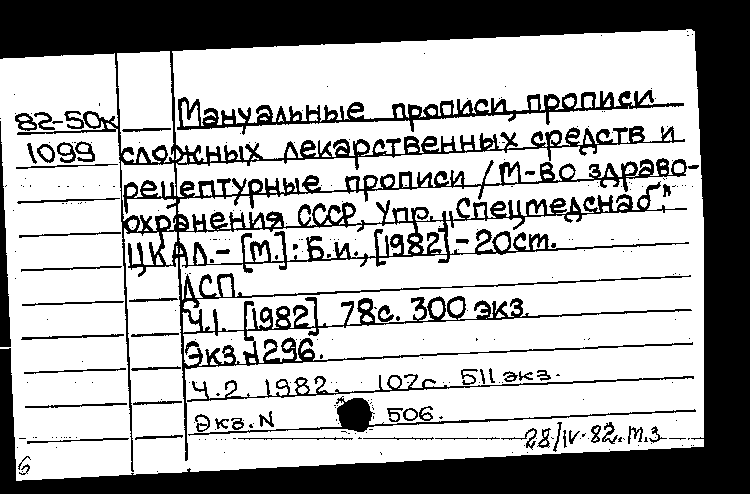 82-50к Мануальные прописи, прописи
1099 сложных лекарственных средств и
рецептурные прописи / М-во здраво-
охранения СССР, Упр. „Спецмедснаб",
ЦКАЛ. - [М.]: Б.и., [1982]. - 20см.
ДСП.
Ч.1. [1982]. 78с. 300 экз.
Экз. N 296.
Ч.2. 1982. 107с. 511 экз.
Экз. N 506.
28/IV-82. м.з
6